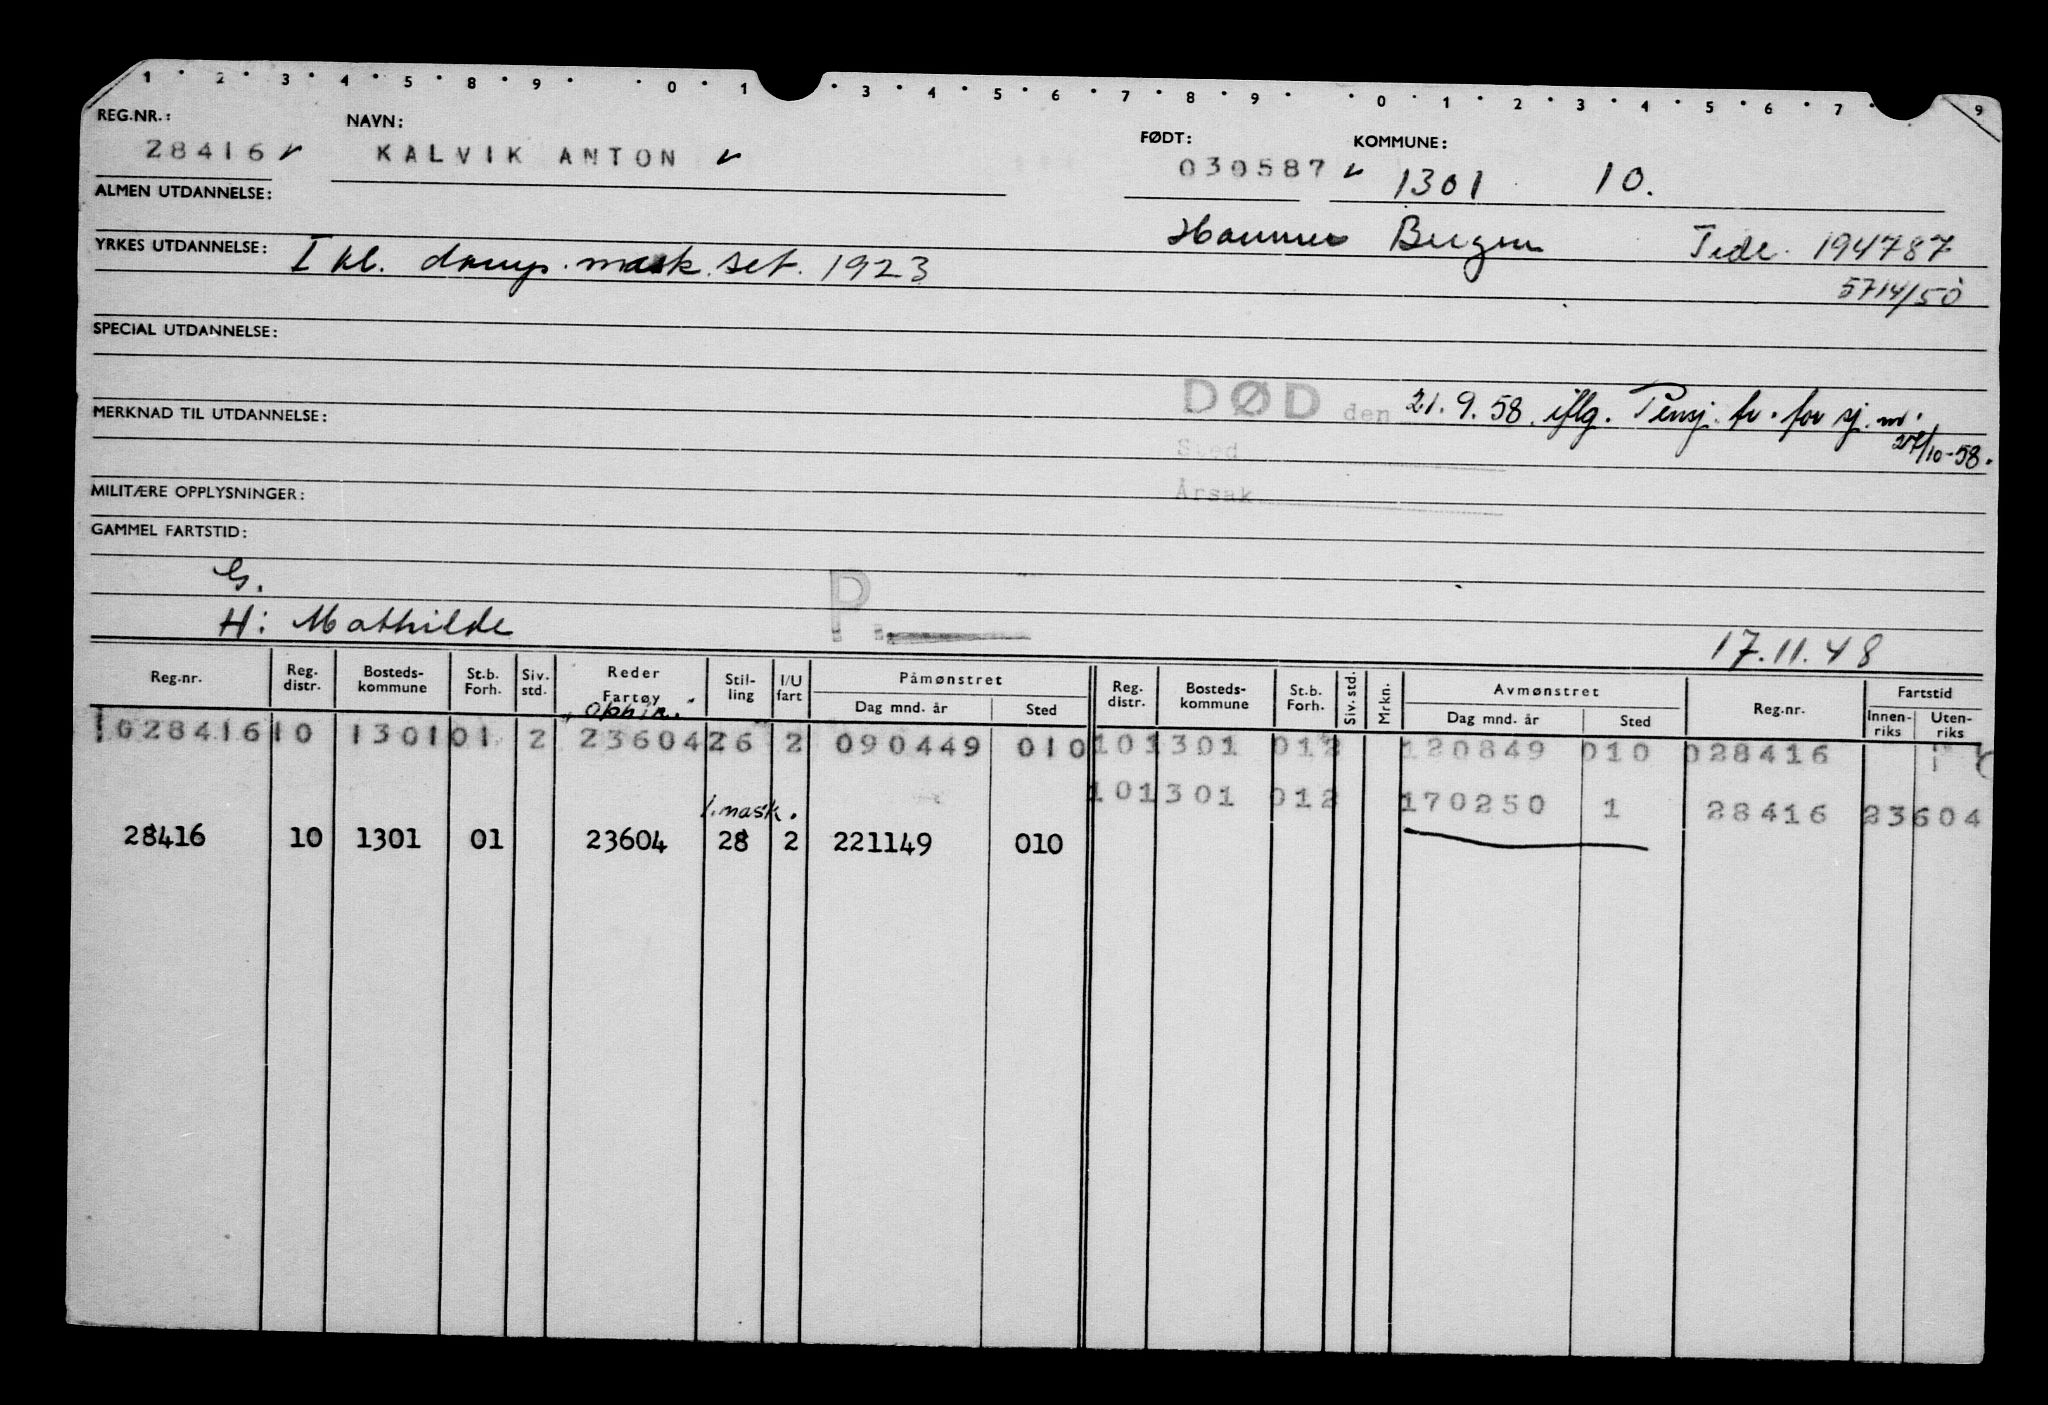 1 · 2 · 3 · 4 · 5 · 8 · 9 · · 0 · 1 · 3 · 4 · 5 · 6 · 7 · 8 · 9 · · 0 · 1 · 2 · 3 · 4 · 5 · 6 · 7 · 9
REG.NR.: NAVN: FØDT: KOMMUNE:
28416 ✓ KALVIK ANTON ✓ 030587 ✓ 1301 10.
ALMEN UTDANNELSE:
Bergen 194787
YRKES UTDANNELSE: I kl. damp.mask.set. 1923
5714/50
SPECIAL UTDANNELSE:
DØD den 21.9.58. iflg. Pensj. tr. for sj.m.
MERKNAD TIL UTDANNELSE:
Sted /10-58.
Årsak
MILITÆRE OPPLYSNINGER:
GAMMEL FARTSTID:
G. P.
H: Mathilde
17.11.48
Reg.nr. Reg. distr. Bosteds-kommune St.b. Forh. Siv. std. Reder Fartøy Stil-ling I/U fart Påmønstret Dag mnd. år Sted Reg. distr. Bosteds-kommune St.b. Forh. Siv. std. Mrkn. Avmønstret Dag mnd. år Sted Reg.nr. Fartstid Innen-riks Uten-riks
"Ophir."
028416 10 1301 01 2 23604 26 2 090449 010 10 1301 012 120849 010 028416
10 1301 012 170250 1 28416 23604
1.mask.
28416 10 1301 01 23604 28 2 221149 010